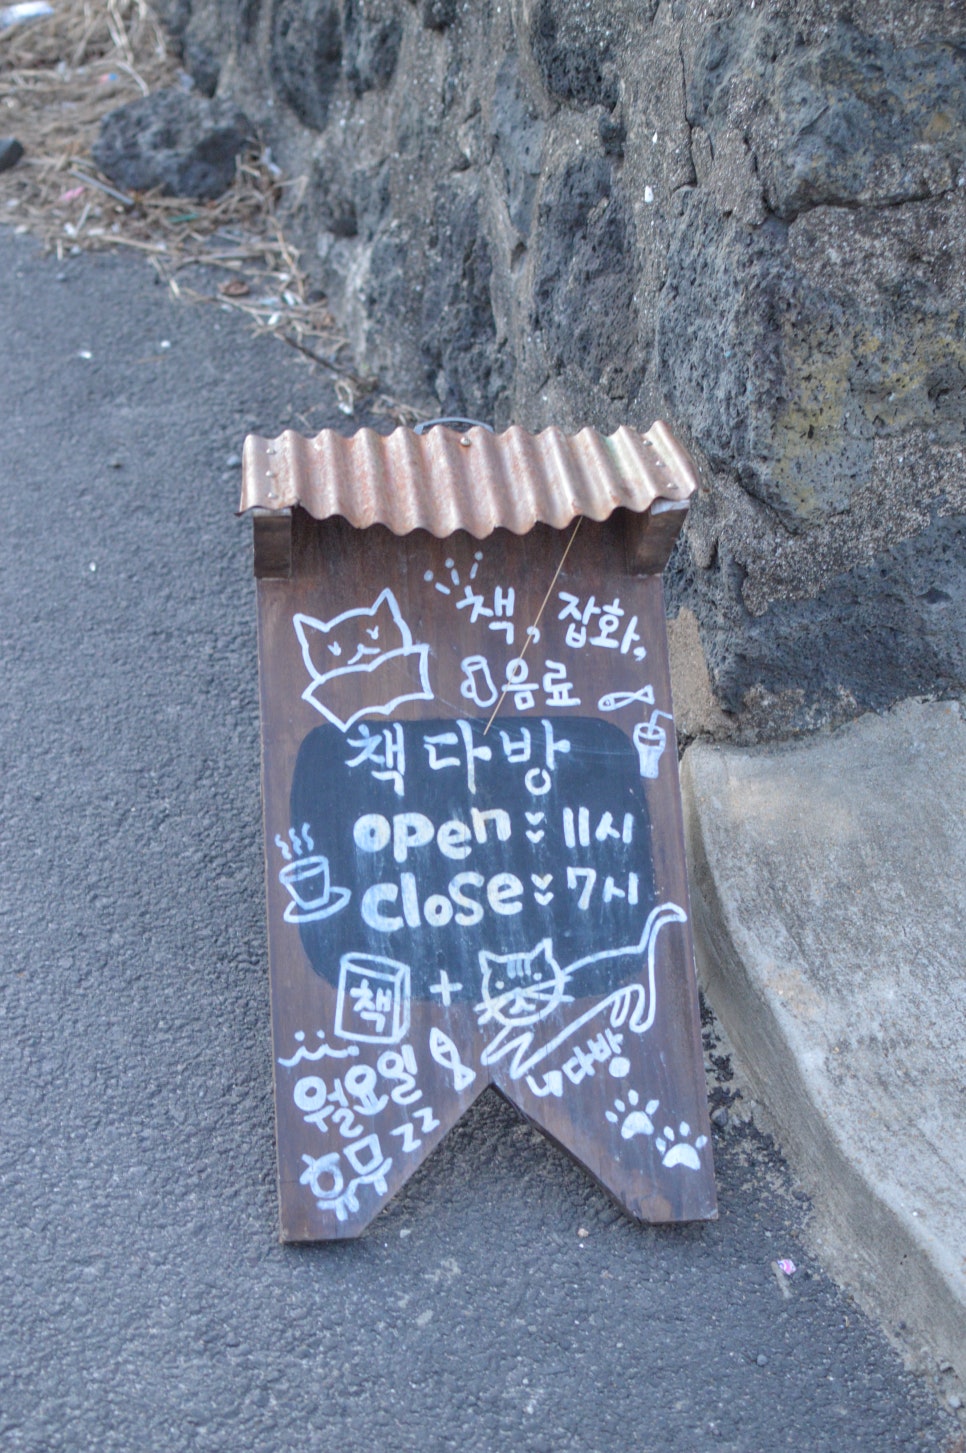 책, 잡화,
음료
책다방
open : 11시
close : 7시
책 +
다방
월요일
휴무 zz